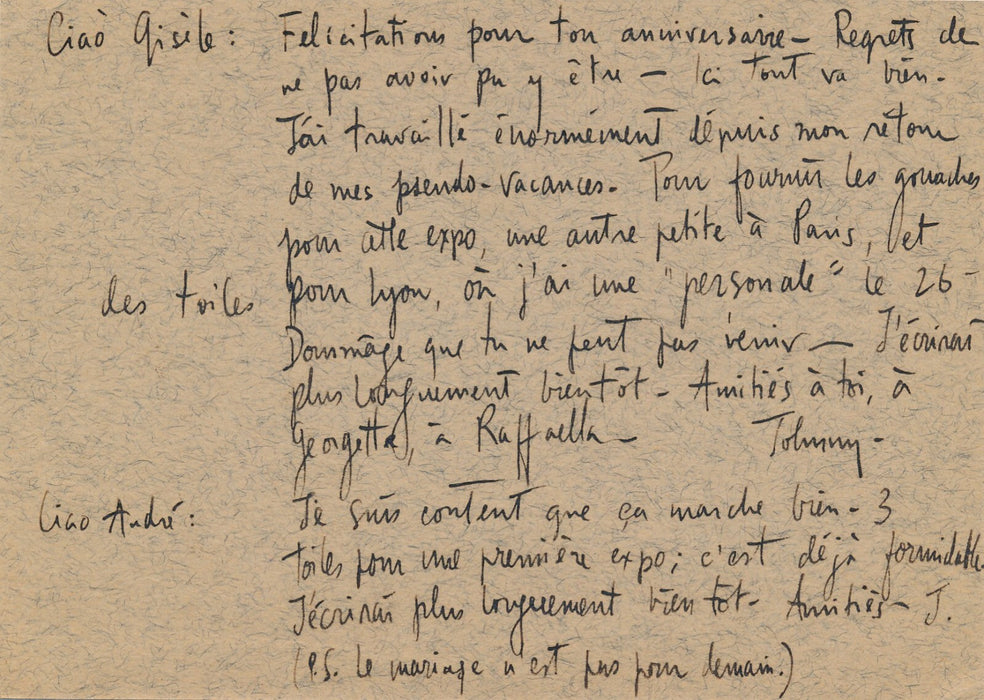 Ciaò Gisèle : Felicitations pour ton anniversaire – Regrets de
ne pas avoir pu y être – Ici tout va bien.
J'ai travaillé énormément dépuis mon rétour
de mes pseudo-vacances. Pour fournir les gouaches
pour cette expo, une autre petite à Paris, et
des toiles pour Lyon, où j'ai une "personale" le 26 –
Dommage que tu ne peut pas venir – J'écrirai
plus longuement bientôt – Amitiés à toi, à
Georgette, à Raffaella – Johnny –
Ciao André : Je suis content que ça marche bien – 3
toiles pour une première expo ; c'est déjà formidable.
J'écrirai plus longuement bientôt – Amitiés – J.
(P.S. Le mariage n'est pas pour demain.)